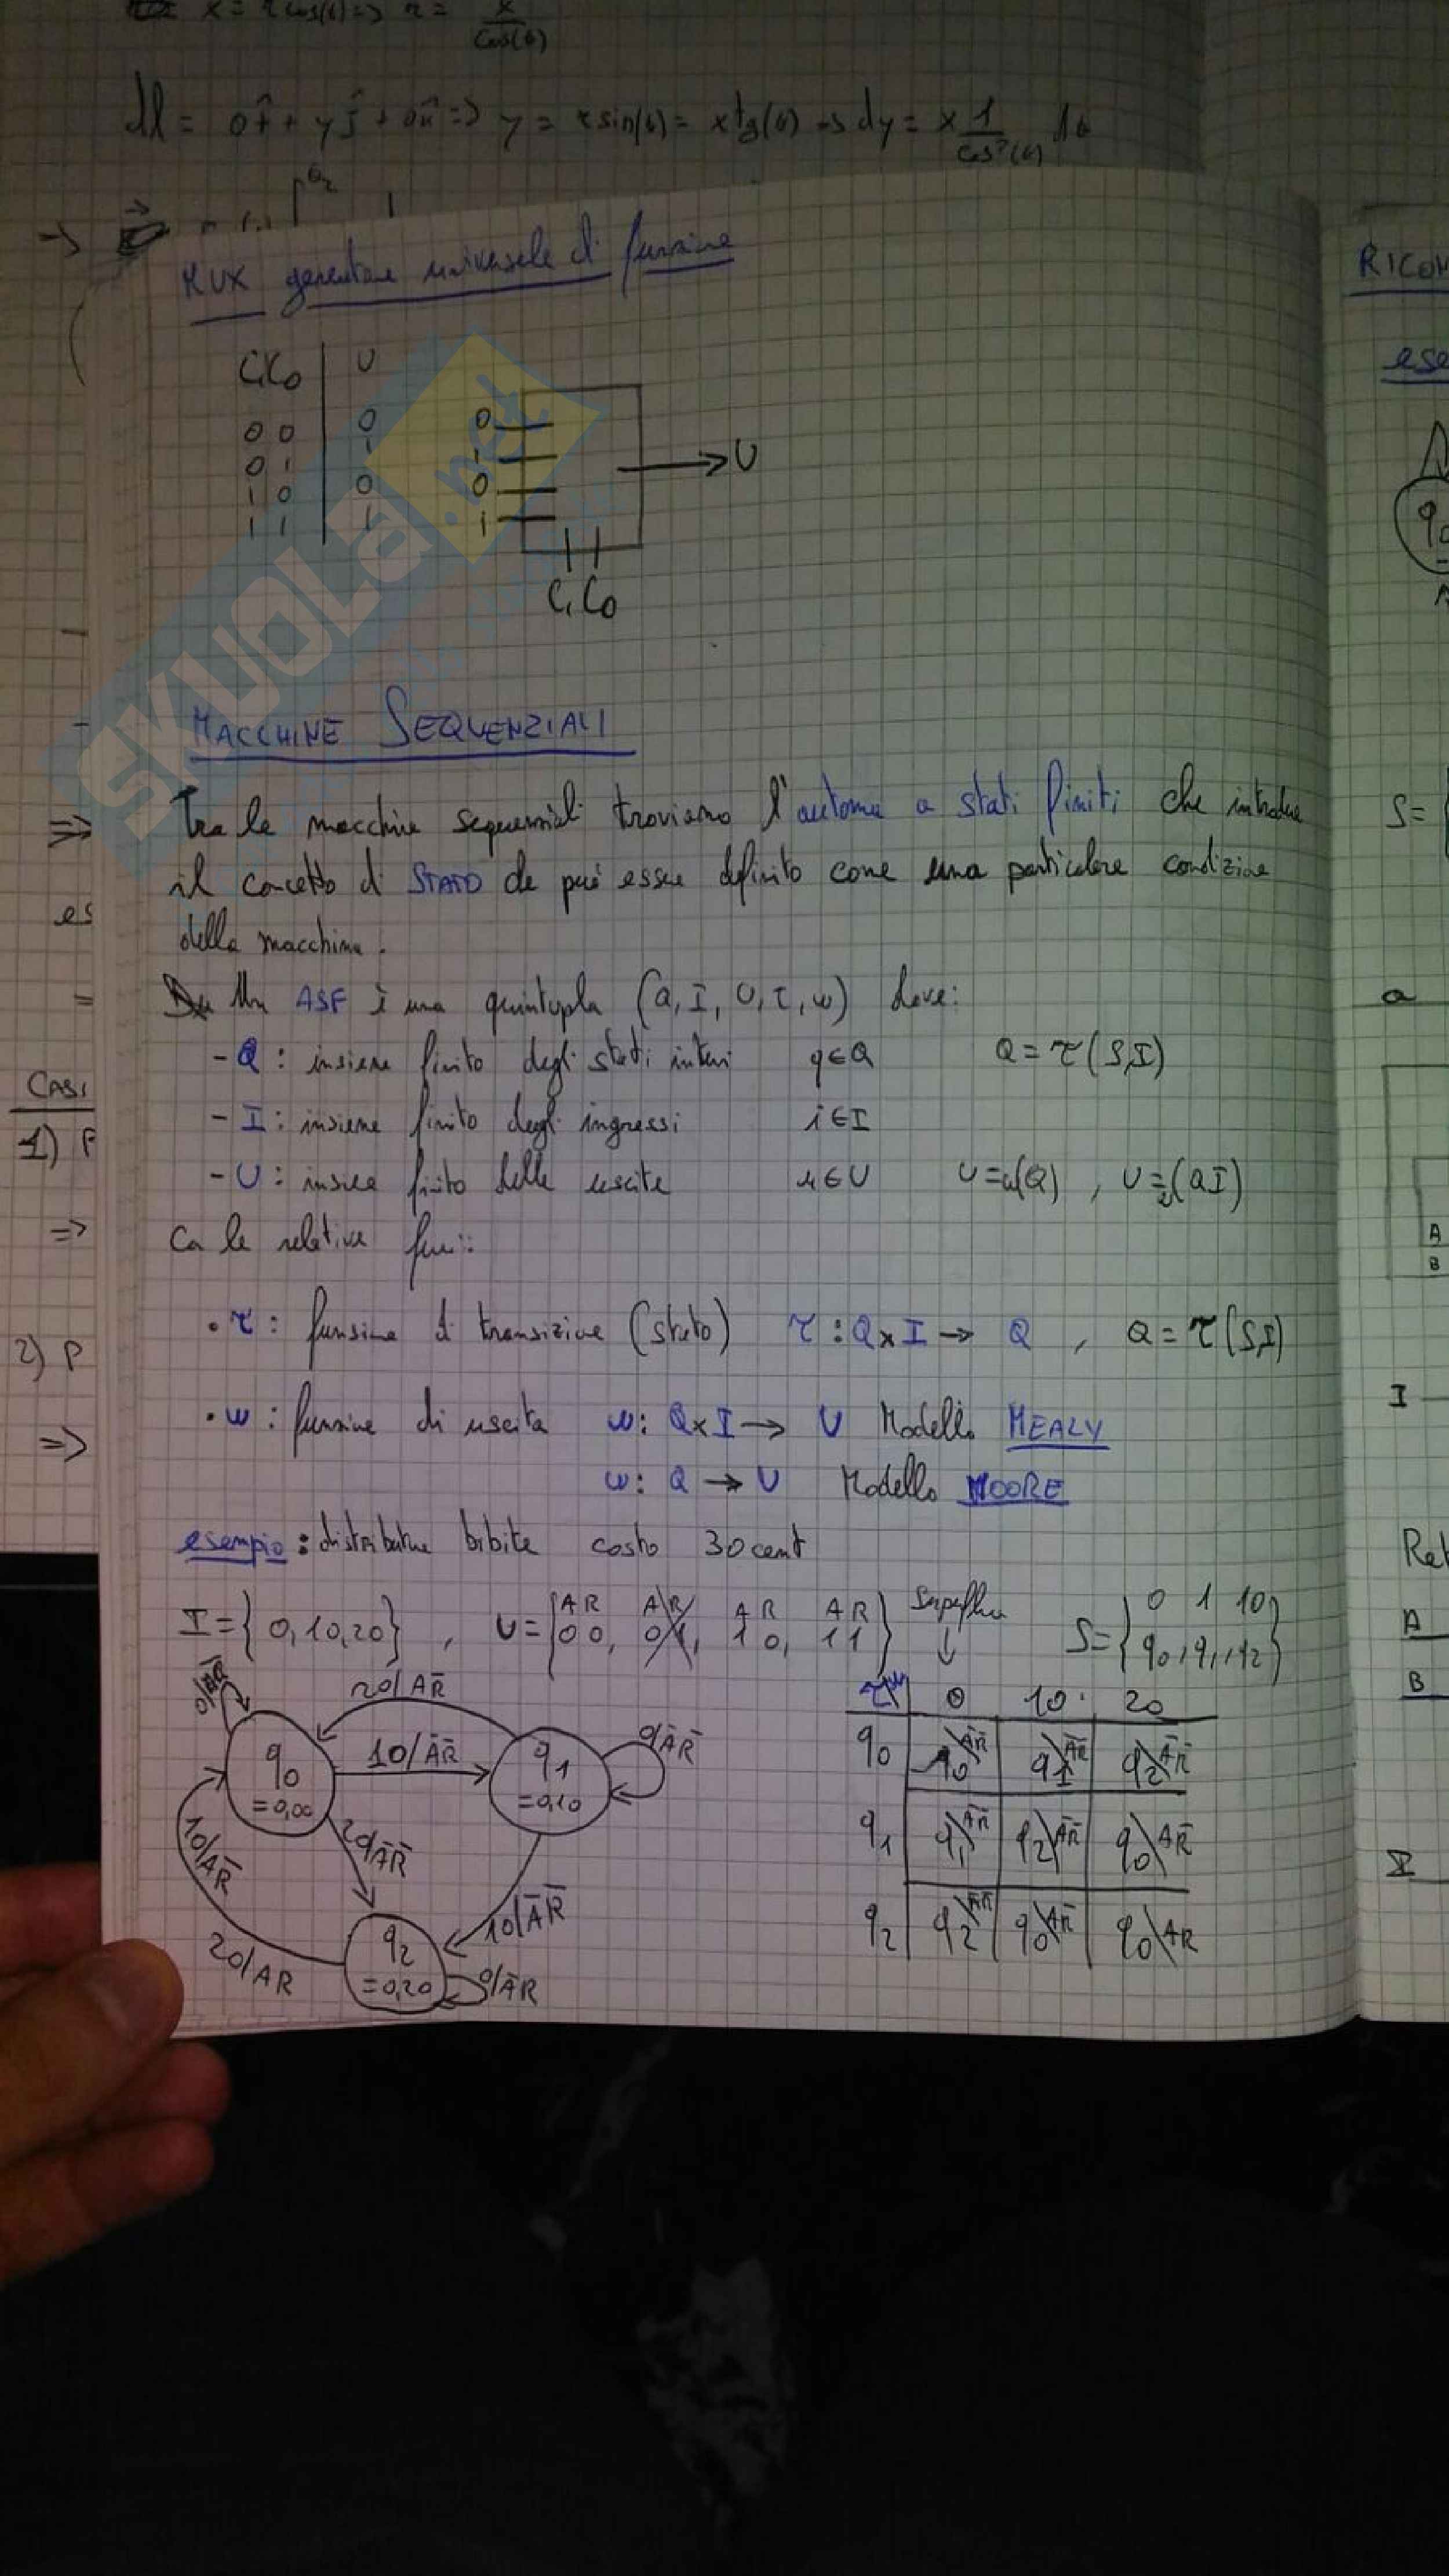 x = r cos(θ) => r = x / cos(θ)
dl = 0i + yj + 0k => y = r sin(θ) = x tg(θ) -> dy = x 1/cos²(θ) dθ
MUX generatore universale di funzione
C₁C₀ | U
0 0 | 0
0 1 | 1
1 0 | 0
1 1 | 1
0
1
0
1
U
C₁ C₀
SKUOLA.net
MACCHINE SEQUENZIALI
Tra le macchine sequenziali troviamo l'automa a stati finiti che introduce
il concetto di STATO che può essere definito come una particolare condizione
della macchina.
Un ASF è una quintupla (Q, I, U, τ, ω) dove:
- Q : insieme finito degli stati interni q∈Q Q = τ(S,I)
- I : insieme finito degli ingressi i∈I
- U : insieme finito delle uscite u∈U U=ω(Q) , U=ω(QI)
Con le relative funzioni:
• τ : funzione di transizione (stato) τ : Q×I → Q , Q = τ(S,I)
• ω : funzione di uscita ω: Q×I → U Modello MEALY
ω: Q → U Modello MOORE
esempio: distributore bibite costo 30 cent
I = {0, 10, 20} , U = {AR 00, AR 01, AR 10, AR 11} Superflua ↓ S = {0 q₀, 1 q₁, 10 q₂}
0/A̅R̅
20/AR̅
q₀ =0,00
10/A̅R̅
q₁ =0,10
0/A̅R̅
20/A̅R̅
10/AR̅
10/A̅R̅
20/AR
q₂ =0,20
0/A̅R̅
τ\ω | 0 | 10 | 20
q₀ | q₀\A̅R̅ | q₁\A̅R̅ | q₂\A̅R̅
q₁ | q₁\A̅R̅ | q₂\A̅R̅ | q₀\AR̅
q₂ | q₂\A̅R̅ | q₀\AR̅ | q₀\AR
es
CASI
1) P
=>
2) P
=>
RICON
ese
q₀
S = {
a
A
B
I
Ret
A
B